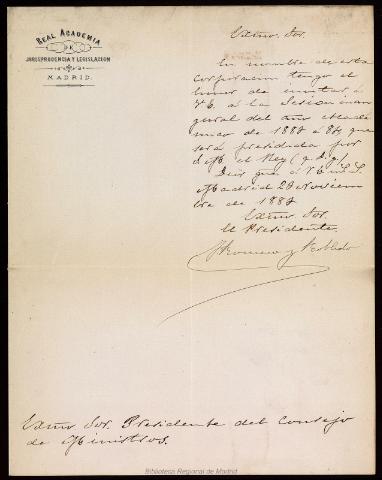 REAL ACADEMIA
DE
JURISPRUDENCIA Y LEGISLACION
MADRID.
Exmo. Sor.
En nombre de esta
corporacion tengo el
honor de invitar á
V.E. á la Sesion inau
gural del año acadé
mico de 1883 á 84, que
será presidida por
S.M. el Rey (q. D. g.)
Dios gue á V.E. m.
Madrid 23 Noviem
bre de 1883
Exmo. Sor.
El Presidente
F Romero y Robledo
Exmo Sor. Presidente del Consejo
de Ministros.
Biblioteca Regional de Madrid